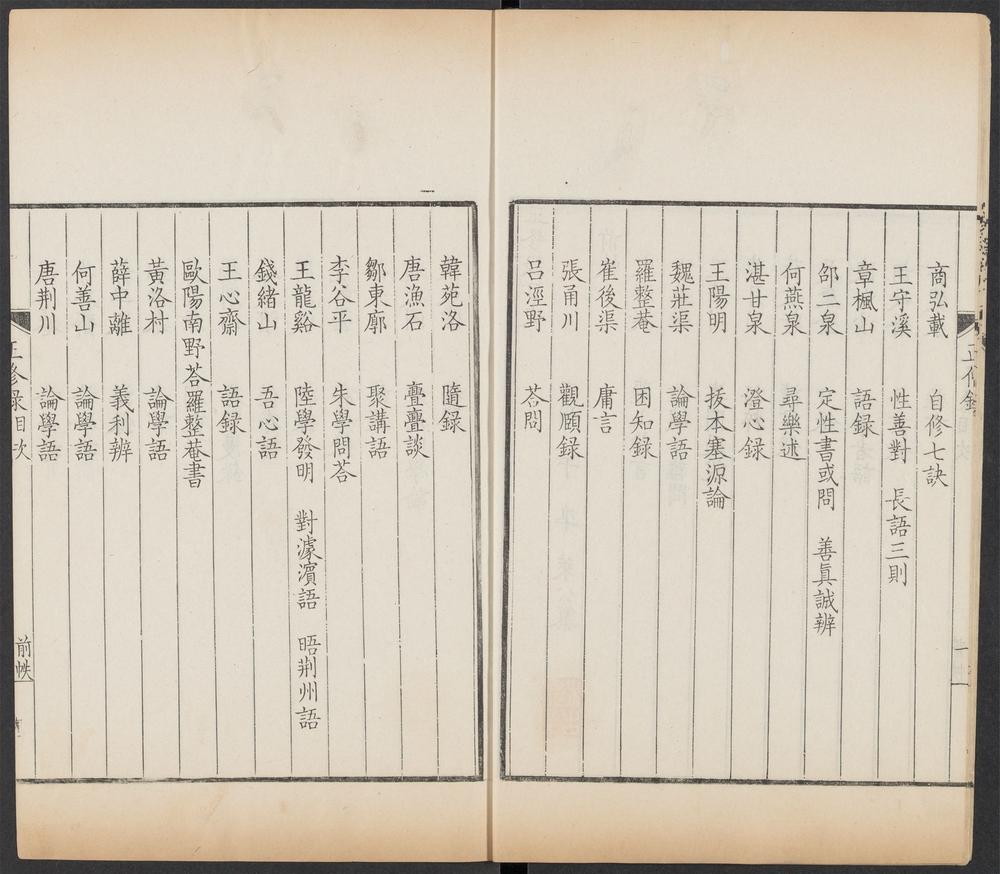 商弘載　自修七訣
王守溪　性善對　長語三則
章楓山　語録
邵二泉　定性書或問　善眞誠辨
何燕泉　尋樂述
湛甘泉　澄心録
王陽明　拔本塞源論
魏莊渠　論學語
羅整菴　困知録
崔後渠　庸言
張甬川　觀頤録
呂涇野　荅問
韓苑洛　隨録
唐漁石　亹亹談
鄒東廓　聚講語
李谷平　朱學問荅
王龍谿　陸學發明　對濠濵語　晤荆州語
錢緒山　吾心語
王心齋　語録
歐陽南野荅羅整菴書
黃洛村　論學語
薛中離　義利辨
何善山　論學語
唐荆川　論學語
正修録目次　前帙